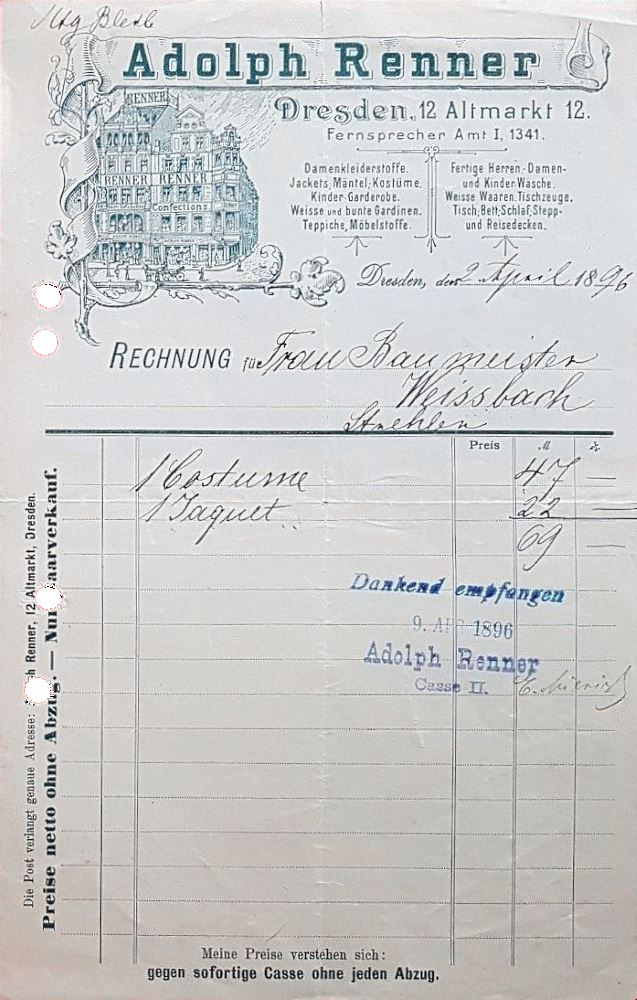 Adolph Renner
Dresden, 12 Altmarkt 12.
Fernsprecher Amt I, 1341.
RENNER
RENNER RENNER
Confections
Damenkleiderstoffe.
Jackets, Mäntel, Kostüme.
Kinder-Garderobe.
Weisse und bunte Gardinen.
Teppiche, Möbelstoffe.
Fertige Herren-, Damen-
und Kinder-Wäsche.
Weisse Waaren. Tischzeuge.
Tisch-, Bett-, Schlaf-, Stepp-
und Reisedecken.
Dresden, den 2 April 1896
RECHNUNG für Frau Baumeister
Weissbach
Strehlen
Preis M
1 Costume 47 —
1 Jaquet 22 —
69 —
Dankend empfangen
9. AP 1896
Adolph Renner
Casse II.
Die Post verlangt genaue Adresse: Adolph Renner, 12 Altmarkt, Dresden.
Preise netto ohne Abzug. — Nur Baarverkauf.
Meine Preise verstehen sich:
gegen sofortige Casse ohne jeden Abzug.